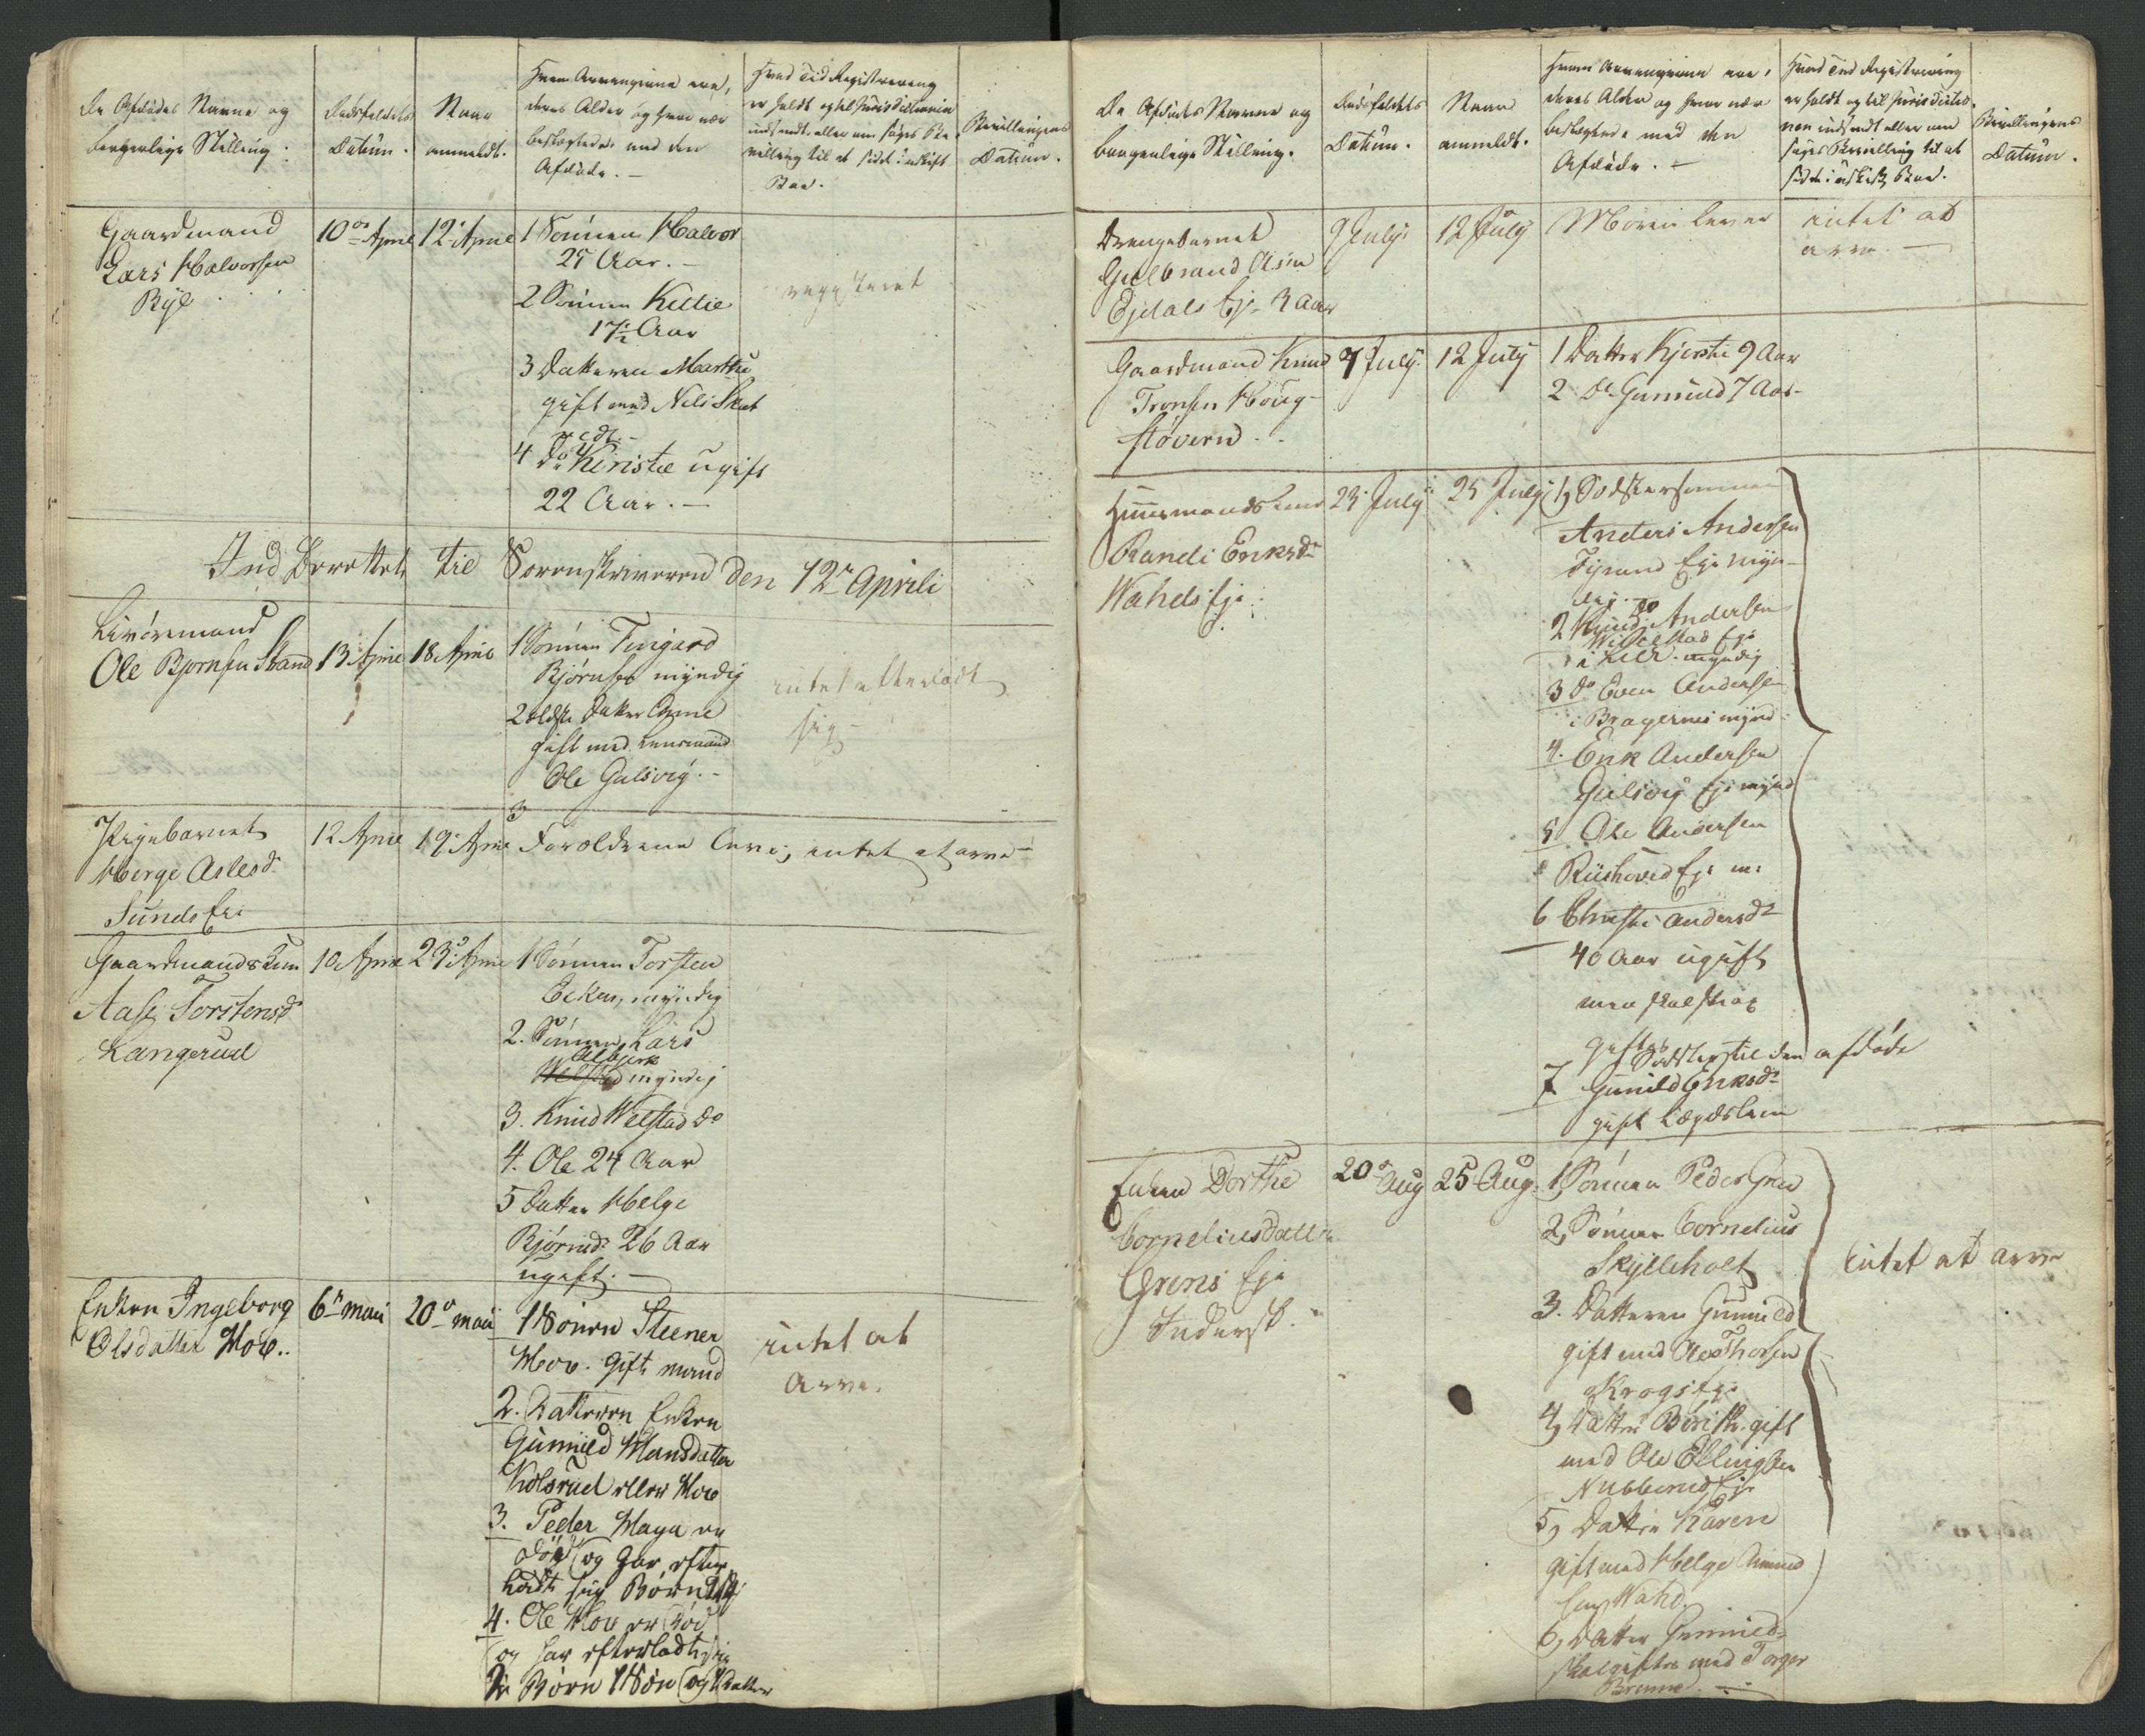 De Afdødes Navne og
borgerlige Stilling.
Dødsfaldets
Datum.
Naar
anmeldt.
Hvem Arvingerne ere,
deres Alder og hvor nær
beslægtede med den
Afdøde. —
Hvad Tid Registrering
er holdt og til Jurisdictionen
indsendt eller om søges Be-
villing til at sidde i uskift
Boe.
Bevillingens
Datum.
Gaardmand
Lars Halvorsen
Bye
10de April
12 April
1 Sønnen Halvor
25 Aar. —
2 Sønnen Kittil
17½ Aar
3 Datteren Marthe
gift med Nils
4 Do Kiristie ugift
22 Aar. —
registeret
Ind Berettet til Sorenskriveren den 12te Aprili
Ole Bjornsen Strand
13 April
18 April
1 Sønnen
Bjørnsen myndig
2 ældste Datter Anne
gift med Lensmand
Ole Gulsvig. —
3
intet efterladt
sig
Pigebarnet
Herge Aslesd.
Sunds Eje
12 April
19 April
Forældrene leve, intet at arve —
Gaardmandskone
Aase Torstensd.
Langerud
10 April
23 April
1 Sønnen Torsten
myndig
2. Sønnen Lars
Albjerk
Welstad myndig
3. Knud Welstad Do
4. Ole 24 Aar
5 Datter Helge
Bjørnsd. 26 Aar
ugift. —
Enken Ingeborg
Olsdatter Hov..
6te maii
20de maii
1 Sönen Steener
Hov. gift mand
2. Datteren Enken
Gunnild Hansdatter
Kolsrud eller Hov
3. Peder Haga er
död og har efter
ladt sig Børn
4. Ole Hov er död
og har efterladt sig
2 Börn 1 Sön og 1 Datter
intet at
arve.
De Afdødes Navne og
borgerlige Stilling.
Dødsfaldets
Datum.
Naar
anmeldt.
Hvem Arvingerne ere,
deres Alder og hvor nær
beslægtede med den
Afdøde. —
Hvad Tid Registrering
er holdt og til Jurisdictio-
nen indsendt eller om
søges Bevilling til at
sidde i uskift Boe.
Bevillingens
Datum.
Drengebarnet
Gulbrand
Ejdals Ej. 3 Aar
9 July
12 July
Moren lever
intet at
arve. —
Gaardmand Knud
Tronsen Houg-
støvern
7 July
12 July
1 Datter Kjerstie 9 Aar
2 Do Gunnild 7 Aar
Huusmandskone
Randi Eriksdr
Wahels Eje
23 July
25 July
1, Søstersønnen
Anders Andersen
Eje myn-
dig
2 Knud Do Andersen
Eje
i Lier. myndig
3 do Even Andersen
i Bragernes mynd
4. Erik Andersen
Gulsvig Eje mynd
5 Ole Andersen
Eje m:
6 Christi Andersdr
40 Aar ugift
men skal strax
giftes
7 Søster til den afdøde
Gunild Eriksdr
gift Lægdslem
Enken Dorthe
Corneliusdatter
Grens Eje
Inderst.
20de Aug
25 Aug.
1, Sønnen Peder Gren
2, Sønnen Cornelius
Skylleholt
3. Datteren Gunnild
gift med Ole Thorsen
Krogs Eje
4, Datter Birith. gift
med Ole Ellingsen
Nubberud Eje
5, Datter Karen
gift med Helge Amund
sen Wahd.
6, Datter Gunnild
skal giftes med Torger
Brenne. —
intet at arve